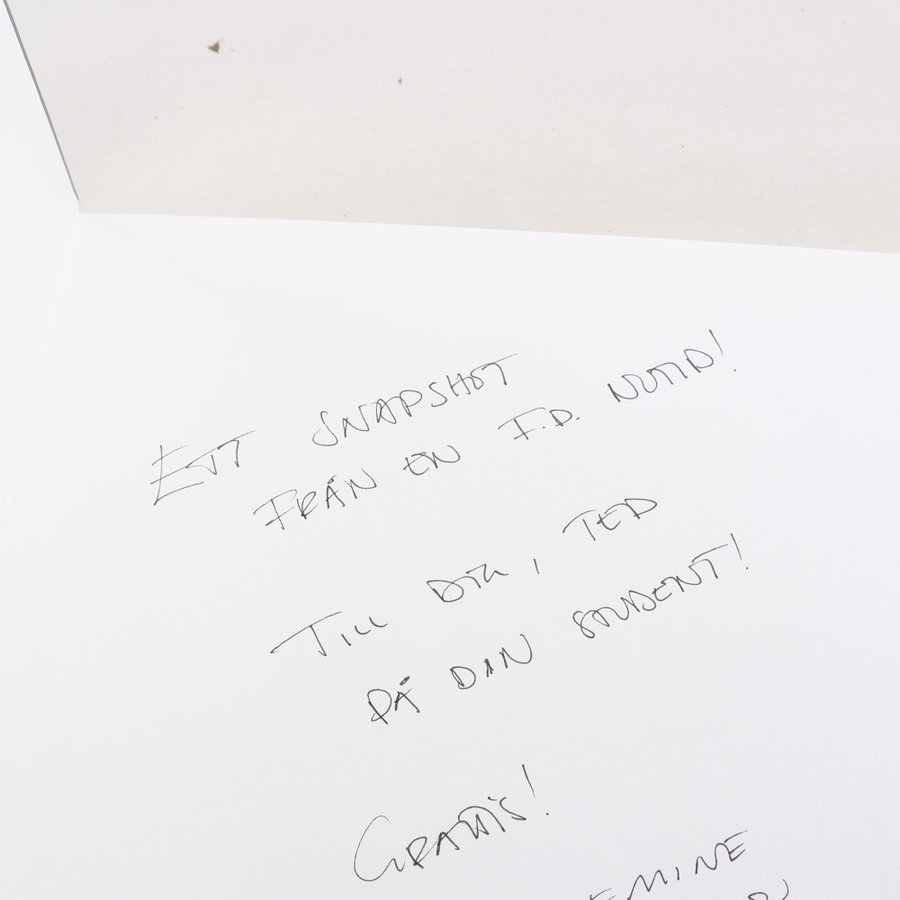 ETT SNAPSHOT
FRÅN EN F.D. NUTID!
TILL DIG, TED
PÅ DIN STUDENT!
GRATTIS!